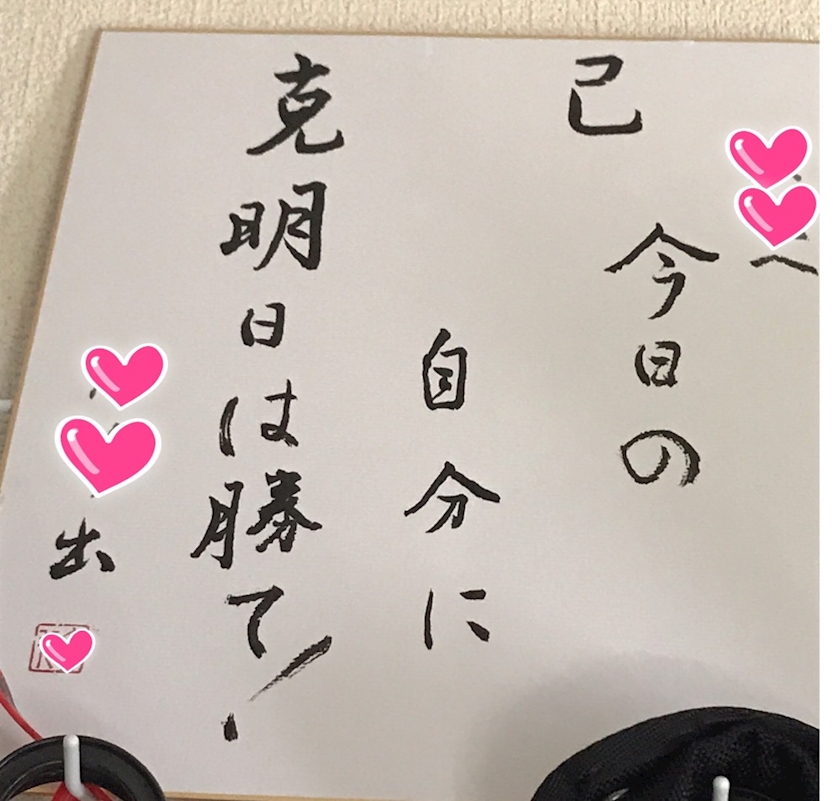 克己
へ
今日の
自分に
明日は勝て!
出